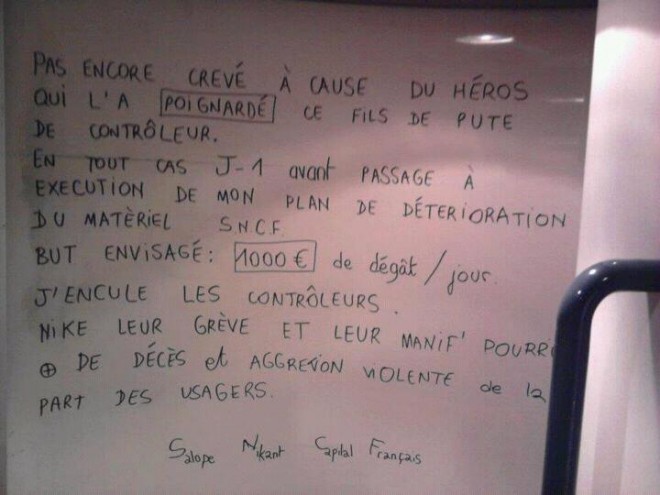 PAS ENCORE CREVÉ À CAUSE DU HÉROS
QUI L'A POIGNARDÉ CE FILS DE PUTE
DE CONTRÔLEUR.
EN TOUT CAS J-1 avant PASSAGE À
EXECUTION DE MON PLAN DE DÉTERIORATION
DU MATÈRIEL S.N.C.F.
BUT ENVISAGÉ: 1000 € de dégât / jour.
J'ENCULE LES CONTRÔLEURS.
NIKE LEUR GRÈVE ET LEUR MANIF' POURRI
⊕ DE DÉCÈS et AGGRESION VIOLENTE de la
PART DES USAGERS.
Salope Nikant Capital Français